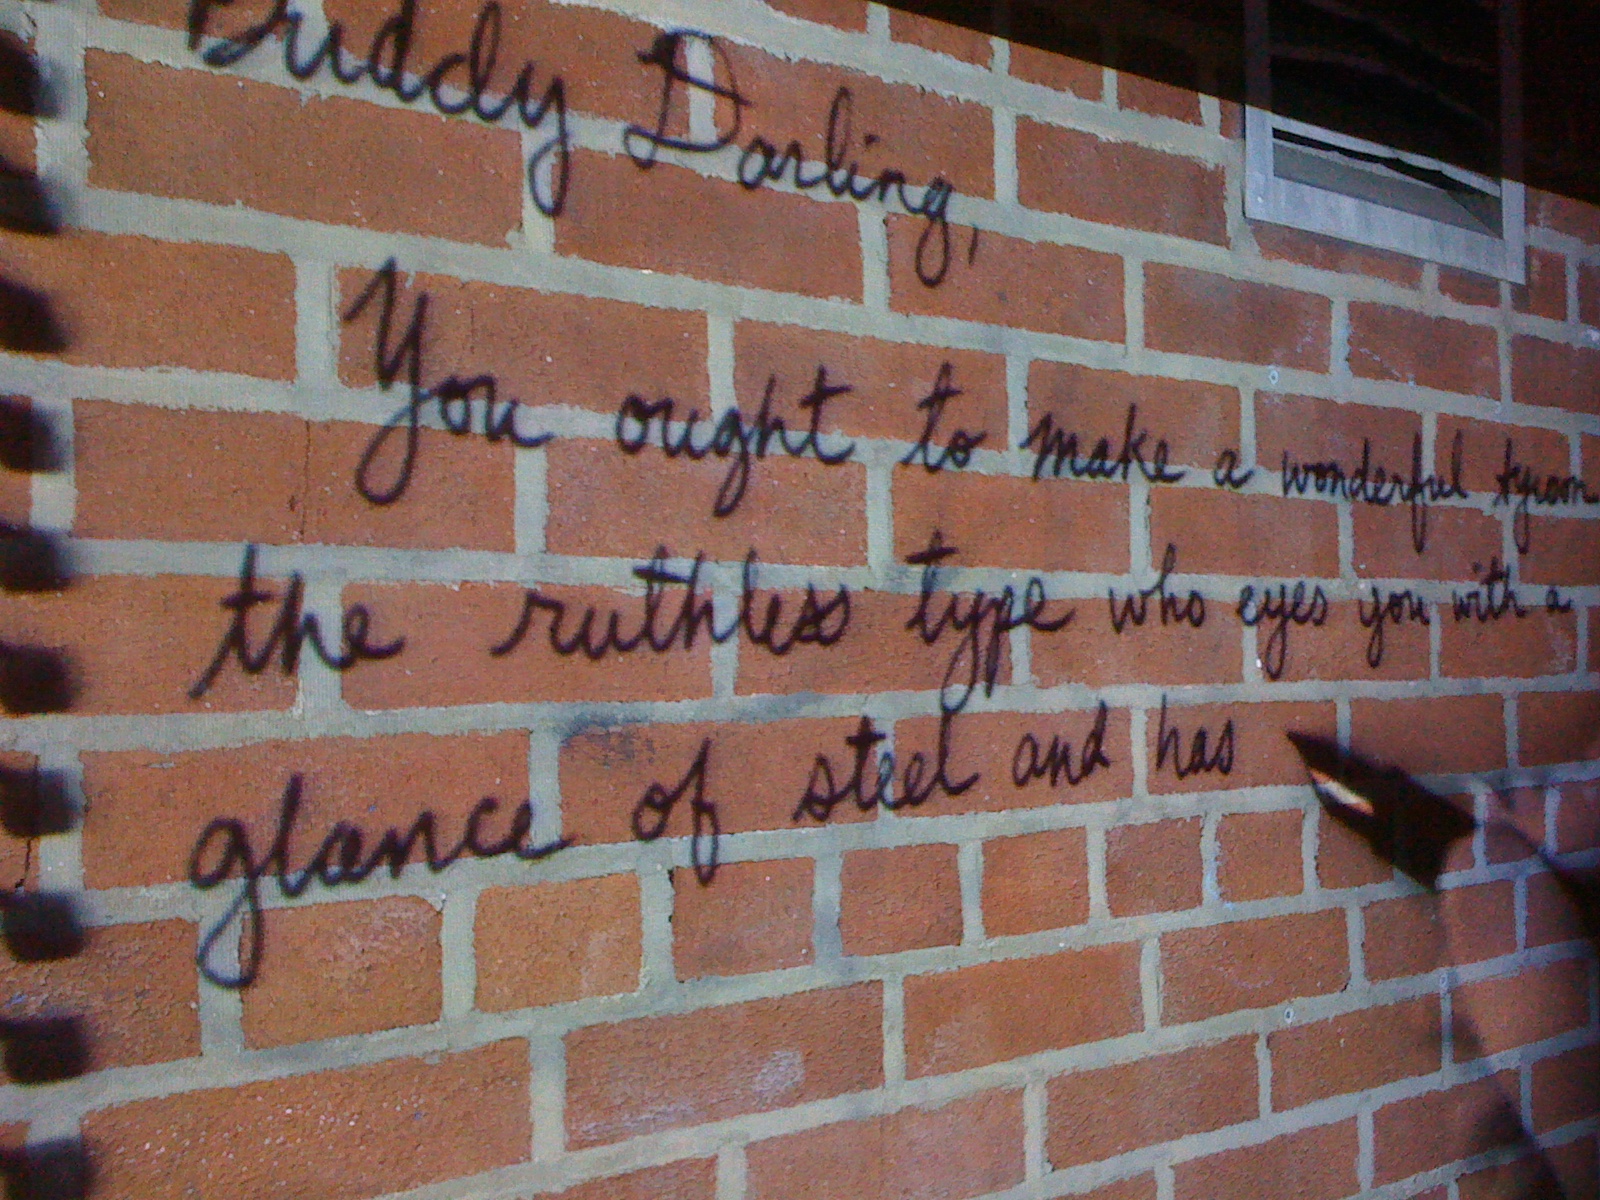 Buddy Darling,
You ought to make a wonderful
the ruthless type who eyes you with a
glance of steel and has